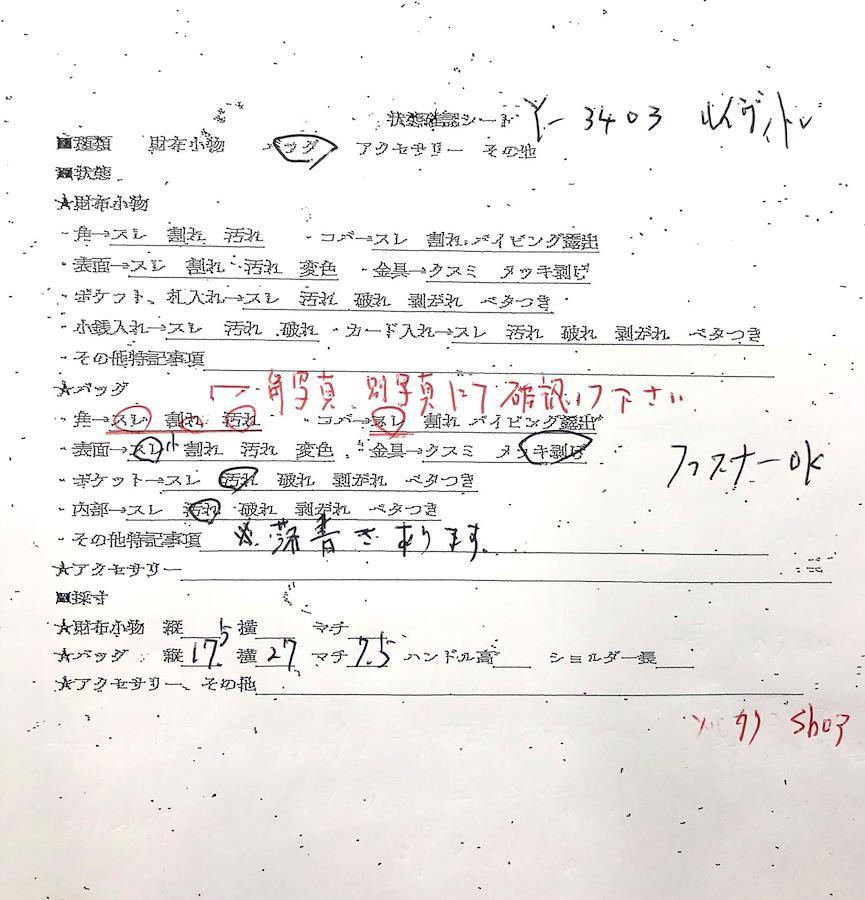 状態確認シート Y-3403 ルイヴィトン
■種類 財布小物 バッグ アクセサリー その他
■状態
★財布小物
・角→スレ 割れ 汚れ ・コバ→スレ 割れ パイピング露出
・表面→スレ 割れ 汚れ 変色 ・金具→クスミ メッキ剥げ
・ポケット、札入れ→スレ 汚れ 破れ 剥がれ ベタつき
・小銭入れ→スレ 汚れ 破れ ・カード入れ→スレ 汚れ 破れ 剥がれ ベタつき
・その他特記事項
★バッグ 角写真、別写真にて確認下さい
・角→スレ 割れ 汚れ ・コバ→スレ 割れ パイピング露出
・表面→スレ小 割れ 汚れ 変色 ・金具→クスミ メッキ剥げ
ファスナーOK
・ポケット→スレ 汚れ 破れ 剥がれ ベタつき
・内部→スレ 汚れ 破れ 剥がれ ベタつき
・その他特記事項 ※ あります。
★アクセサリー
■採寸
★財布小物 縦 横 マチ
★バッグ 縦17.5 横27 マチ7.5 ハンドル高 ショルダー長
★アクセサリー、その他